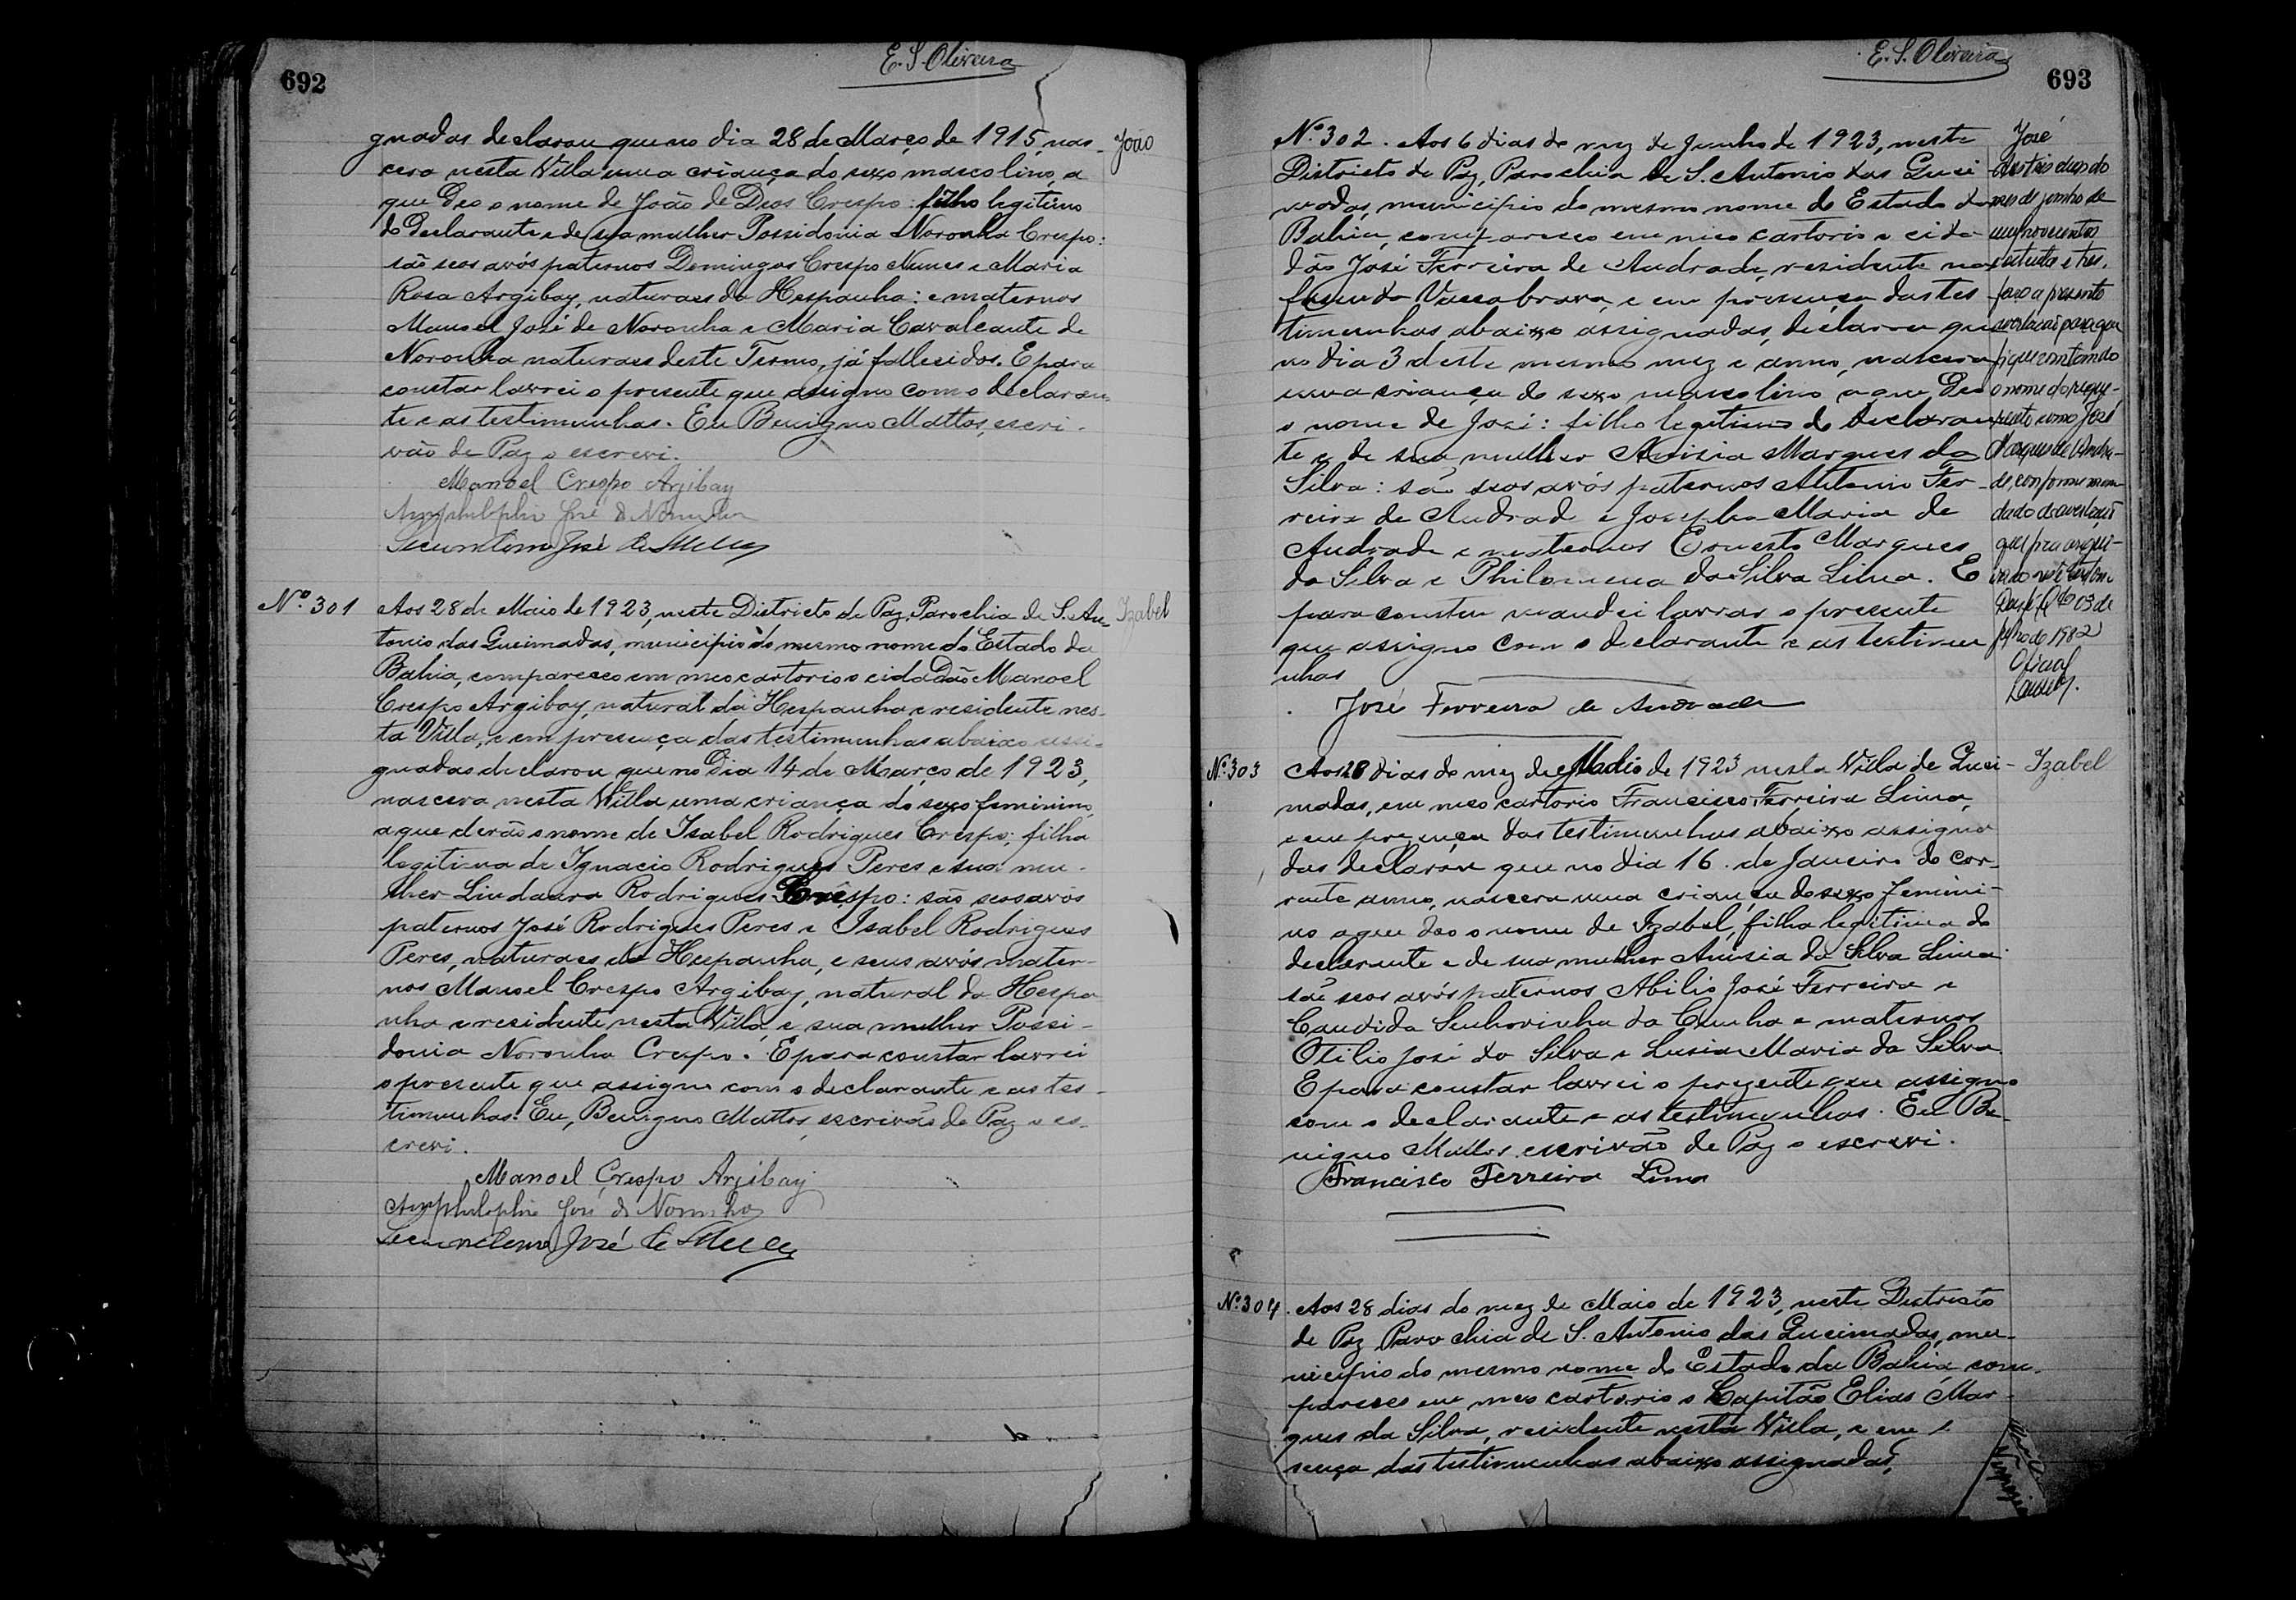 692
E. S. Oliveira
gnadas declarou que no dia 28 de Março de 1915, nas-
João
cera nesta Villa uma criança do sexo mascolino, a
que deo o nome de João de Deos Crespo: filho legitimo
do declarante e de sua mulher Possidonia Noronha Crespo:
são seos avós paternos Domingos Crespo Nunes e Maria
Rosa Argibay, naturaes da Hespanha: e maternos
Manoel José de Noronha e Maria Cavalcante de
Noronha naturaes deste Termo, já fallecidos. E para
constar lavrei o presente que assigno com o declaran-
te e as testimunhas. Eu Benigno Mattos, escri-
vão de Paz o escrevi.
Manoel Crespo Arjibay
Amphilophio José de Noronha
José de
Nº 301
Aos 28 de Maio de 1923, neste Districto de Paz, Parochia de S. An-
Izabel
tonio das Queimadas, municipio do mesmo nome do Estado da
Bahia, compareceo em meo cartorio o cidadão Manoel
Crespo Argibay, natural da Hespanha e residente nes-
ta Villa, e em presença das testimunhas abaixo assi-
gnadas declarou que no dia 14 de Março de 1923,
nascera nesta Villa uma criança do sexo feminino,
a que derão o nome de Isabel Rodrigues Crespo; filha
legitima de Ignacio Rodrigues Peres e sua mu-
lher Lindaura Rodrigues Crespo: são seos avós
paternos José Rodrigues Peres e Isabel Rodrigues
Peres, naturaes da Hespanha, e seus avós mater-
nos Manoel Crespo Argibay, natural da Hespa
nha e residente nesta Villa e sua mulher Possi-
donia Noronha Crespo. E para constar lavrei
o presente que assigno com o declarante e as tes-
timunhas. Eu, Benigno Mattos, escrivão de Paz o es-
crevi.
Manoel Crespo Arjibay
Amphilophio José de Noronha
José de
E. S. Oliveira
693
Nº 302. Aos 6 dias do mez de Junho de 1923, neste
Districto de Paz, Parochia de S. Antonio das Quei-
madas, municipio do mesmo nome do Estado da
Bahia, compareceo em meo cartorio o cida-
dão José Ferreira de Andrade, residente na
fasenda Vacca brava, e em presença das tes-
timunhas abaixo assignadas, declarou que
no dia 3 deste mesmo mez e anno, nascera
uma criança do sexo mascolino a que deo
o nome de José: filho legitimo do declaran-
te e de sua mulher Anisia Marques da
Silva: são seos avós paternos Antonio Fer-
reira de Andrade e Josepha Maria de
Andrade e maternos Ernesto Marques
da Silva e Philomena da Silva Lima. E
para constar mandei lavrar o presente
que assigno com o declarante e as testimu
nhas
José Ferreira de Andrade
José
Aos tres dias do
mes de junho de
mil novecentos
e tres,
faço a presente
averbação para que
fique constando
o nome do regis-
trado como José
Marques de Andra-
de, conforme man-
dado de averbação
que fica arqui-
vado
03 de
de 1982
Oficial
Nº 303
Aos 28 dias do mez de Maio de 1923 nesta Villa de Quei-
Izabel
madas, em meo cartorio Francisco Ferreira Lima,
e em presença das testimunhas abaixo assigna
das declarou que no dia 16 de Janeiro do cor-
rente anno, nascera uma criança do sexo femini-
no a que deo o nome de Izabel, filha legitima do
declarante e de sua mulher Anisia da Silva Lima
são seos avós paternos Abilio José Ferreira e
Candida Senhorinha da Cunha e maternos
Otilio José da Silva e Lusia Maria da Silva.
E para constar lavrei o presente que assigno
com o declarante e as testimunhas. Eu Be-
nigno Mattos, escrivão de Paz o escrevi.
Francisco Ferreira Lima
Nº 304. Aos 28 dias do mez de Maio de 1923, neste Districto
de Paz Parochia de S. Antonio das Queimadas, mu-
nicipio do mesmo nome do Estado da Bahia, com-
pareceo em meo cartorio o Capitão Elias Mar-
ques da Silva, residente nesta Villa, e em
sença das testimunhas abaixo assignadas,